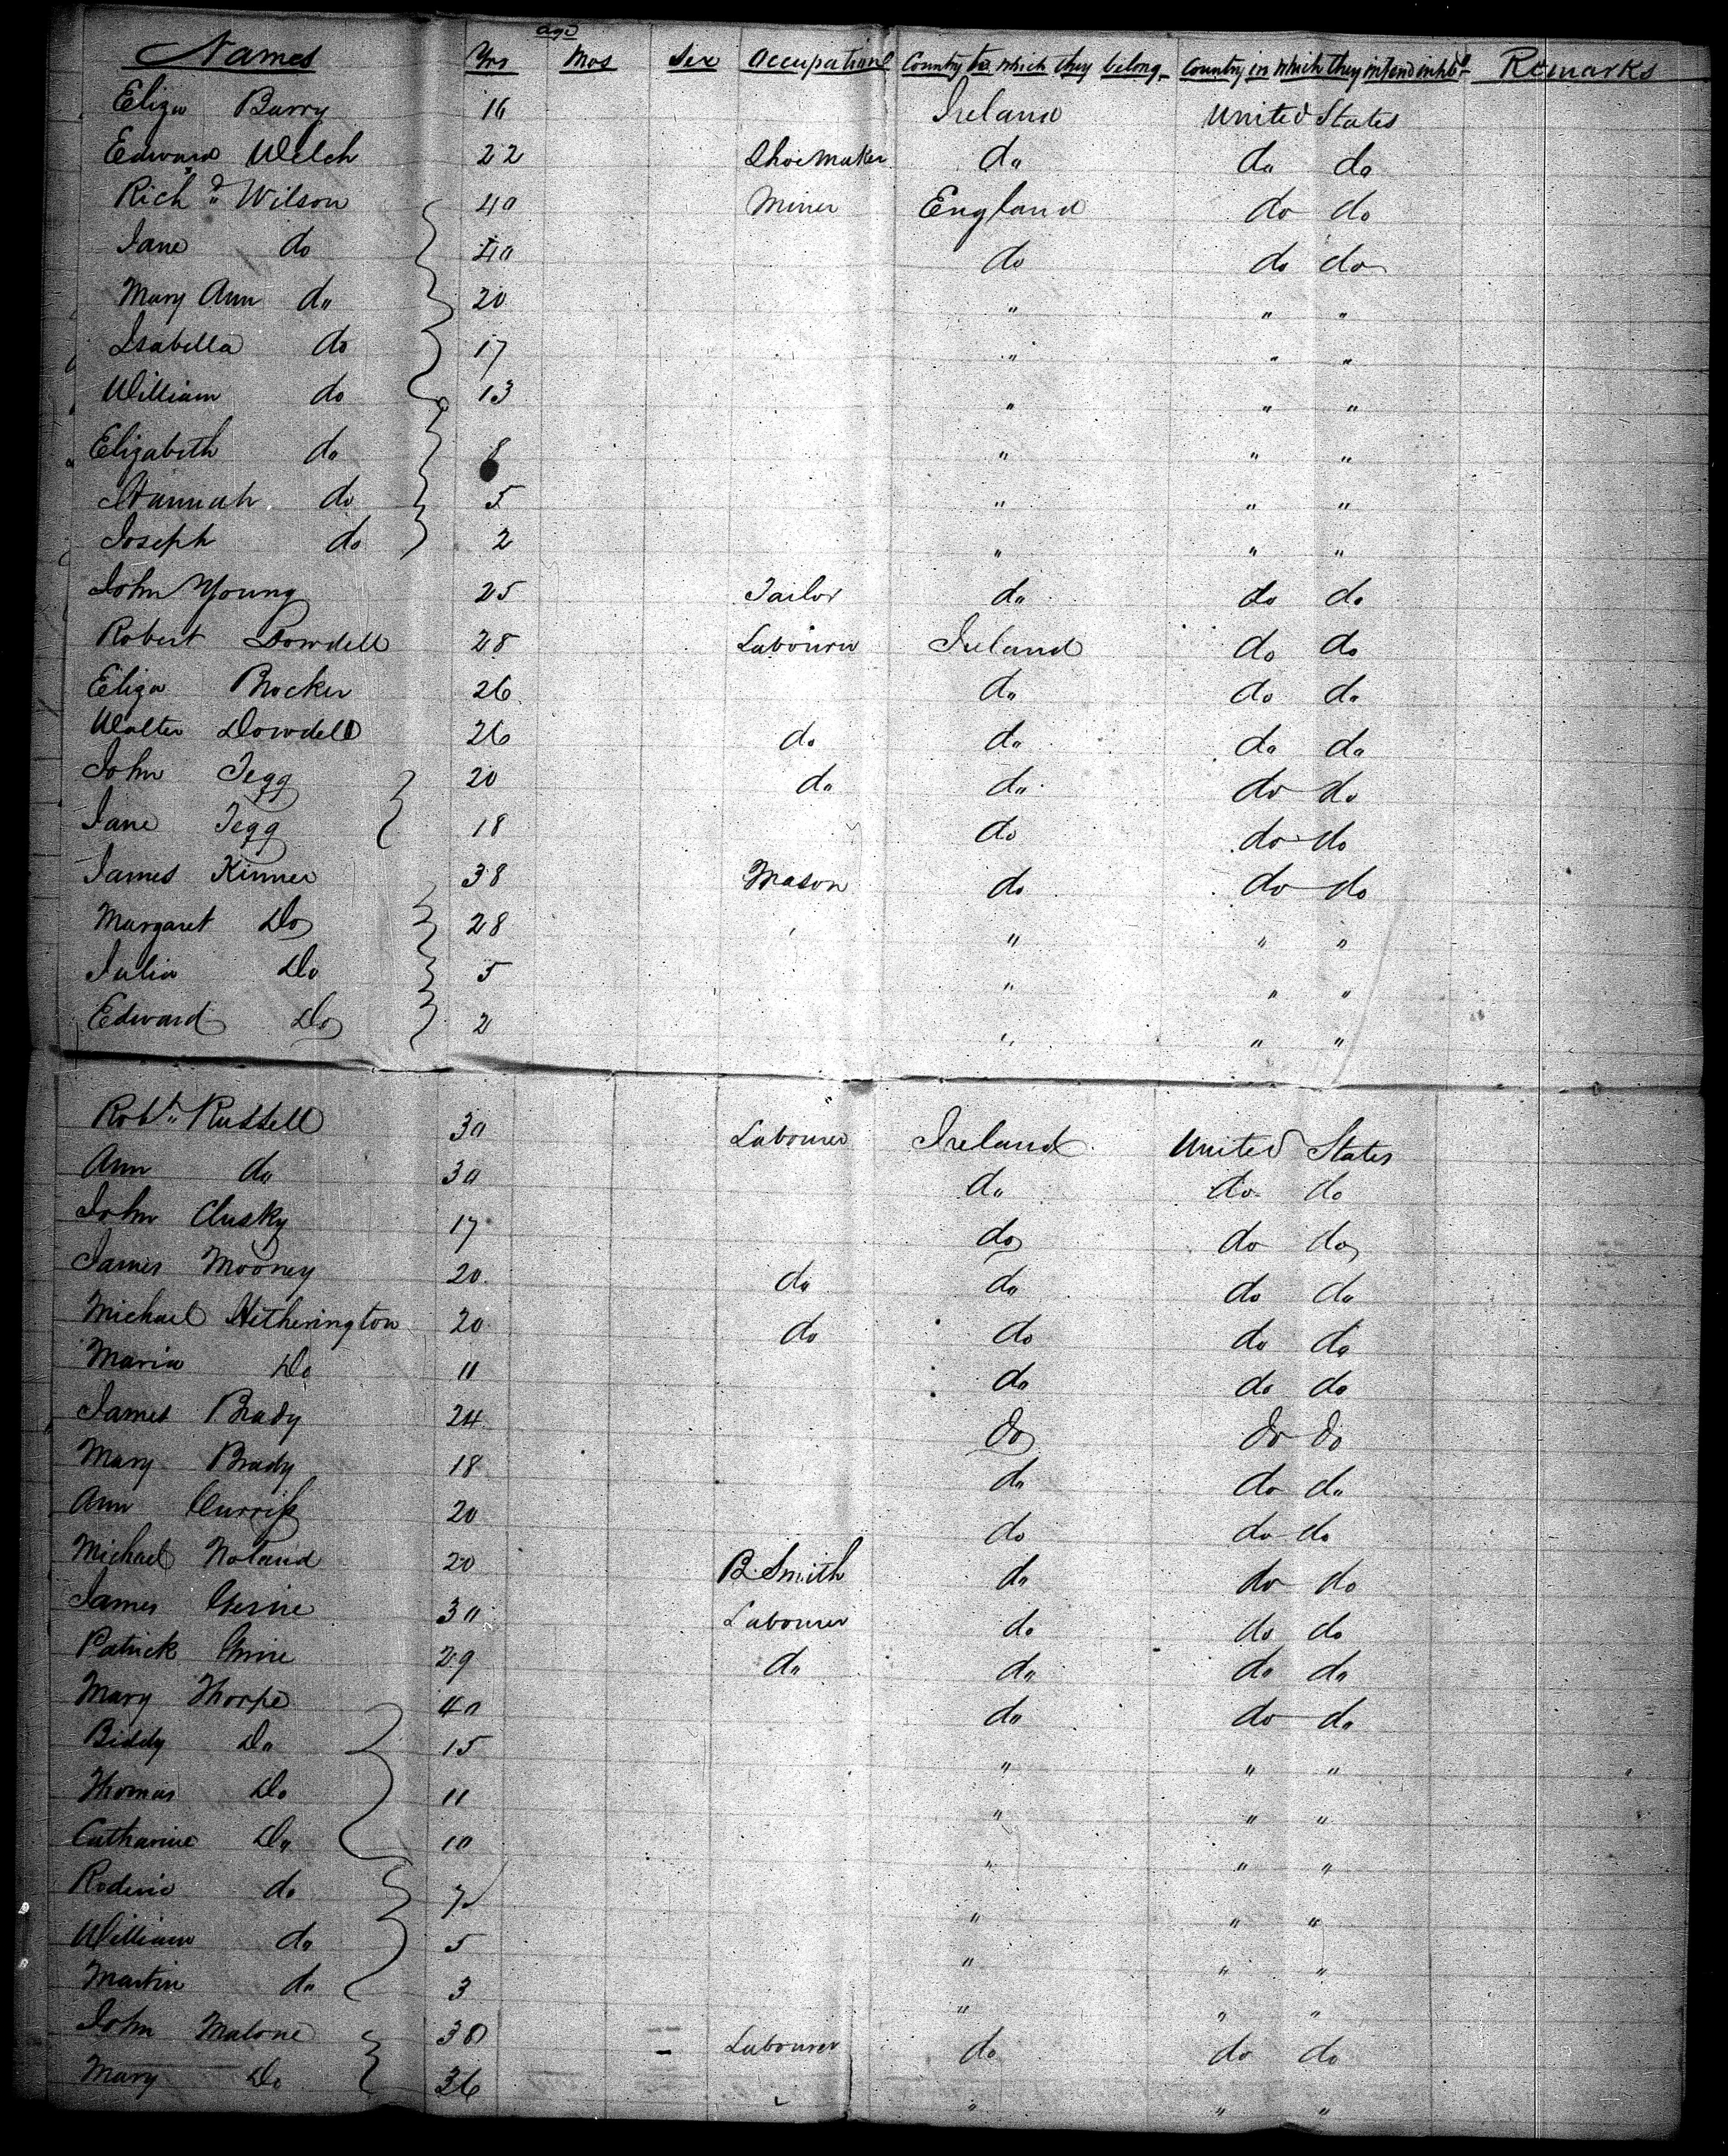 age
Names Yrs Mos Sex Occupation Country to which they belong Country in which they intend inhbt Remarks
Eliza Barry 16 Ireland United States
Edward Welch 22 Shoemaker do do do
Richd Wilson 40 Miner England do do
Jane do 40 do do do
Mary Ann do 20 " " "
Isabella do 17 " " "
William do 13 " " "
Elizabeth do 8 " " "
Hannah do 5 " " "
Joseph do 2 " " "
John Young 25 Tailor do do do
Robert Dowdell 28 Labourer Ireland do do
Eliza Brocker 26 do do do
Walter Dowdell 26 do do do do
John Tegg 20 do do do do
Jane Tegg 18 do do do
James Kinner 38 Mason do do do
Margaret Do 28 " " "
Julia Do 5 " " "
Edward Do 2 " " "
Robt Russell 30 Labourer Ireland United States
Ann do 30 do do do
John Clusky 17 do do do
James Mooney 20 do do do do
Michael Hetherington 20 do do do do
Maria Do 11 do do do
James Brady 24 do do do
Mary Brady 18 do do do
Ann 20 do do do
Michael Noland 20 B. Smith do do do
James 30 Labourer do do do
Patrick 29 do do do do
Mary Thorpe 40 do do do
Biddy Do 15 " " "
Thomas Do 11 " " "
Catharine Do 10 " " "
do 7 " " "
William do 5 " " "
Martin do 3 " " "
John Malone 30 Labourer do do do
Mary Do 36 " " "